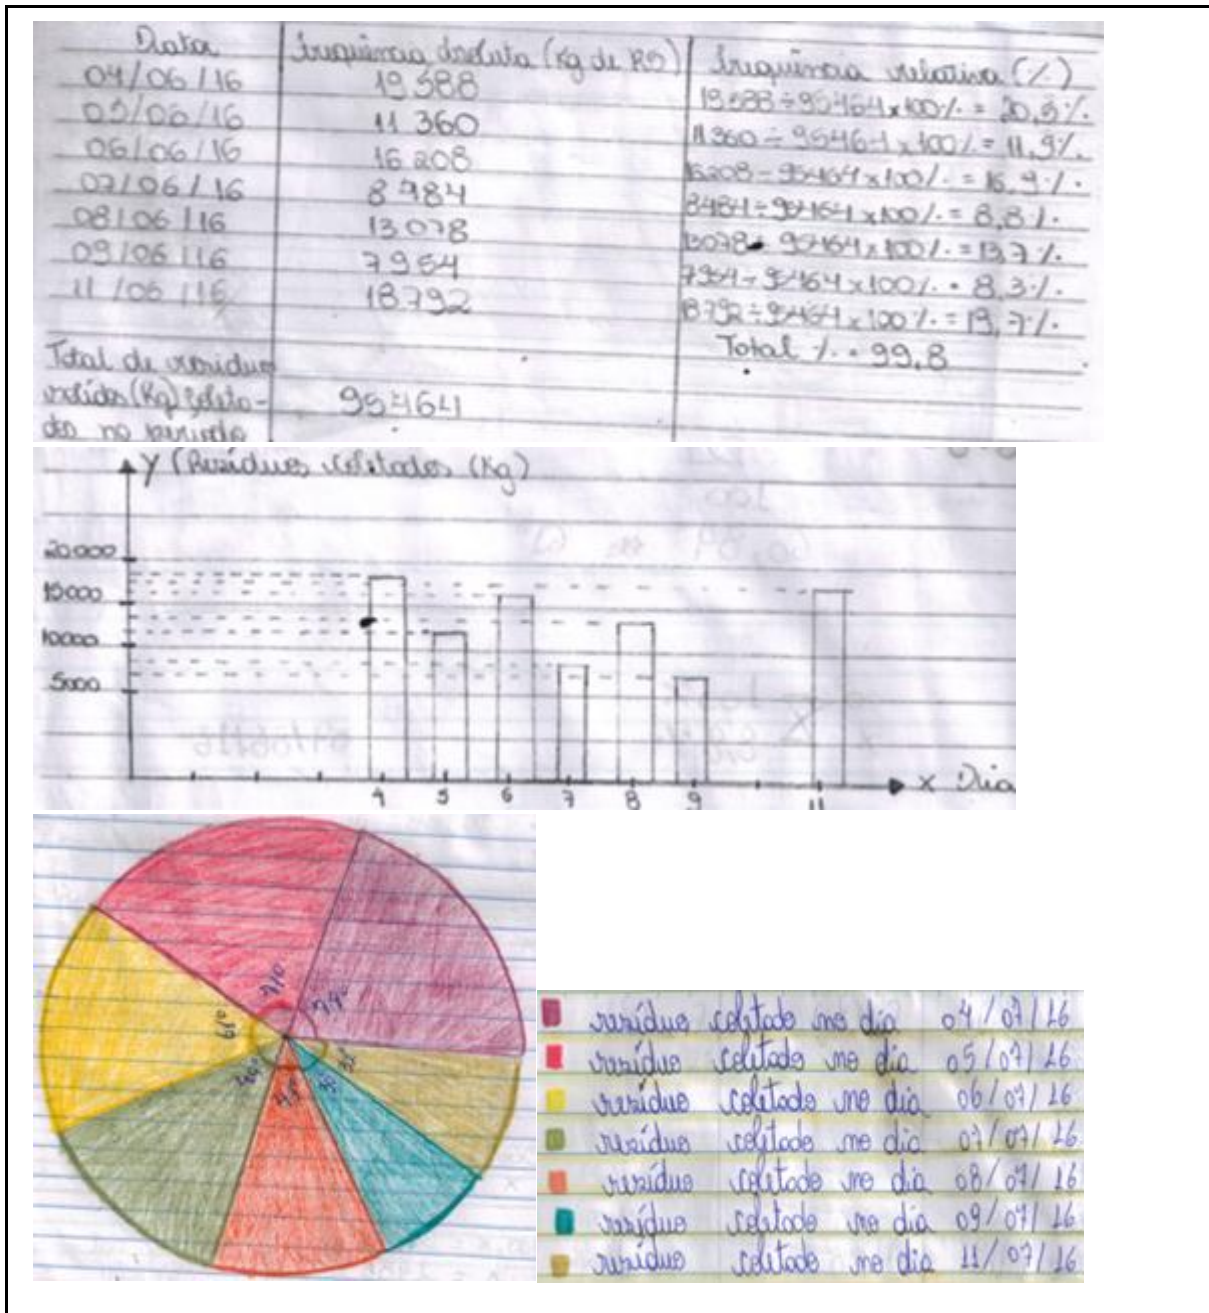 Data | Frequência absoluta (Kg de RS) | Frequência relativa (%)
04/06/16 | 19588 | 19588÷95464x100%=20,5%
05/06/16 | 11360 | 11360÷95464x100%=11,9%
06/06/16 | 16208 | 16208÷95464x100%=16,9%
07/06/16 | 8484 | 8484÷95464x100%=8,8%
08/06/16 | 13078 | 13078÷95464x100%=13,7%
09/06/16 | 7954 | 7954÷95464x100%=8,3%
11/06/16 | 18792 | 18792÷95464x100%=19,7%
Total %=99,8
Total de resíduos
sólidos (Kg) coleta-
dos no período | 95464
Y (Resíduos coletados (Kg)
20000
15000
10000
5000
4 5 6 7 8 9 11
X Dia
resíduo coletado no dia 04/07/16
resíduo coletado no dia 05/07/16
resíduo coletado no dia 06/07/16
resíduo coletado no dia 07/07/16
resíduo coletado no dia 08/07/16
resíduo coletado no dia 09/07/16
resíduo coletado no dia 11/07/16